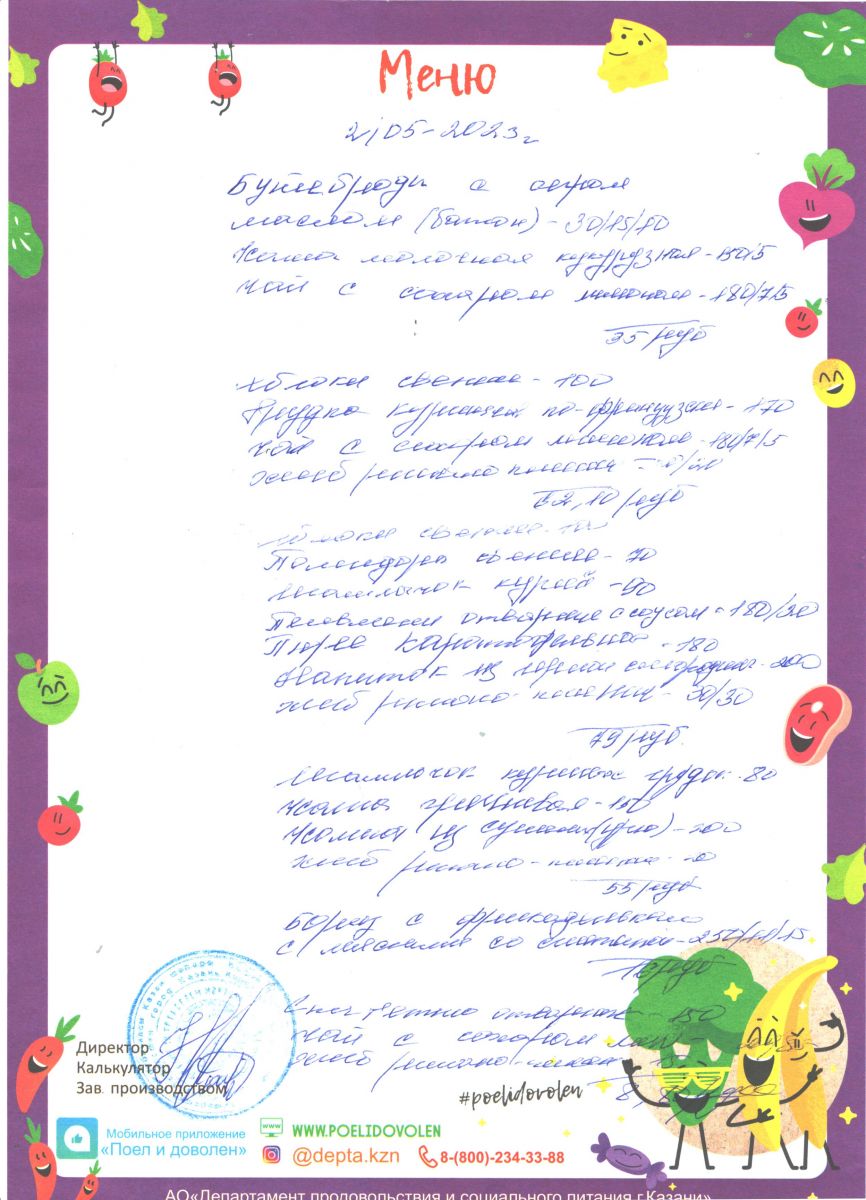 Меню
2/05-2023г
Бутерброды с сыром
маслом (батон) - 30/15/10
Каша молочная кукурузная - 150/5
Чай с сахаром лимоном - 180/7/5
35 руб
Яблоки свежие - 100
Грудка куриная по-французски - 170
Чай с сахаром лимоном - 180/7/5
Хлеб ржано пшенич
62,10 руб
Яблоки свежие - 100
Помидоры свежие - 70
Шашлычок курин - 90
Пельмени отварные с соусом - 180/30
Пюре картофельное - 180
Напиток из черной смородины - 200
Хлеб ржано-пшенич - 30/30
79 руб.
Шашлычок куриный грудк - 80
Каша гречневая - 150
Компот из сушеных - 200
Хлеб ржано-пшенич
55 руб
Борщ с фрикадельками
со сметаной - 250/11/15
руб
отварные - 150
Чай с сахаром лим
Хлеб ржано-пшенич
Директор
Калькулятор
Зав. производством
#poelidovolen
Мобильное приложение
«Поел и доволен»
WWW.POELIDOVOLEN
@depta.kzn
8-(800)-234-33-88
АО«Департамент продовольствия и социального питания г.Казани»